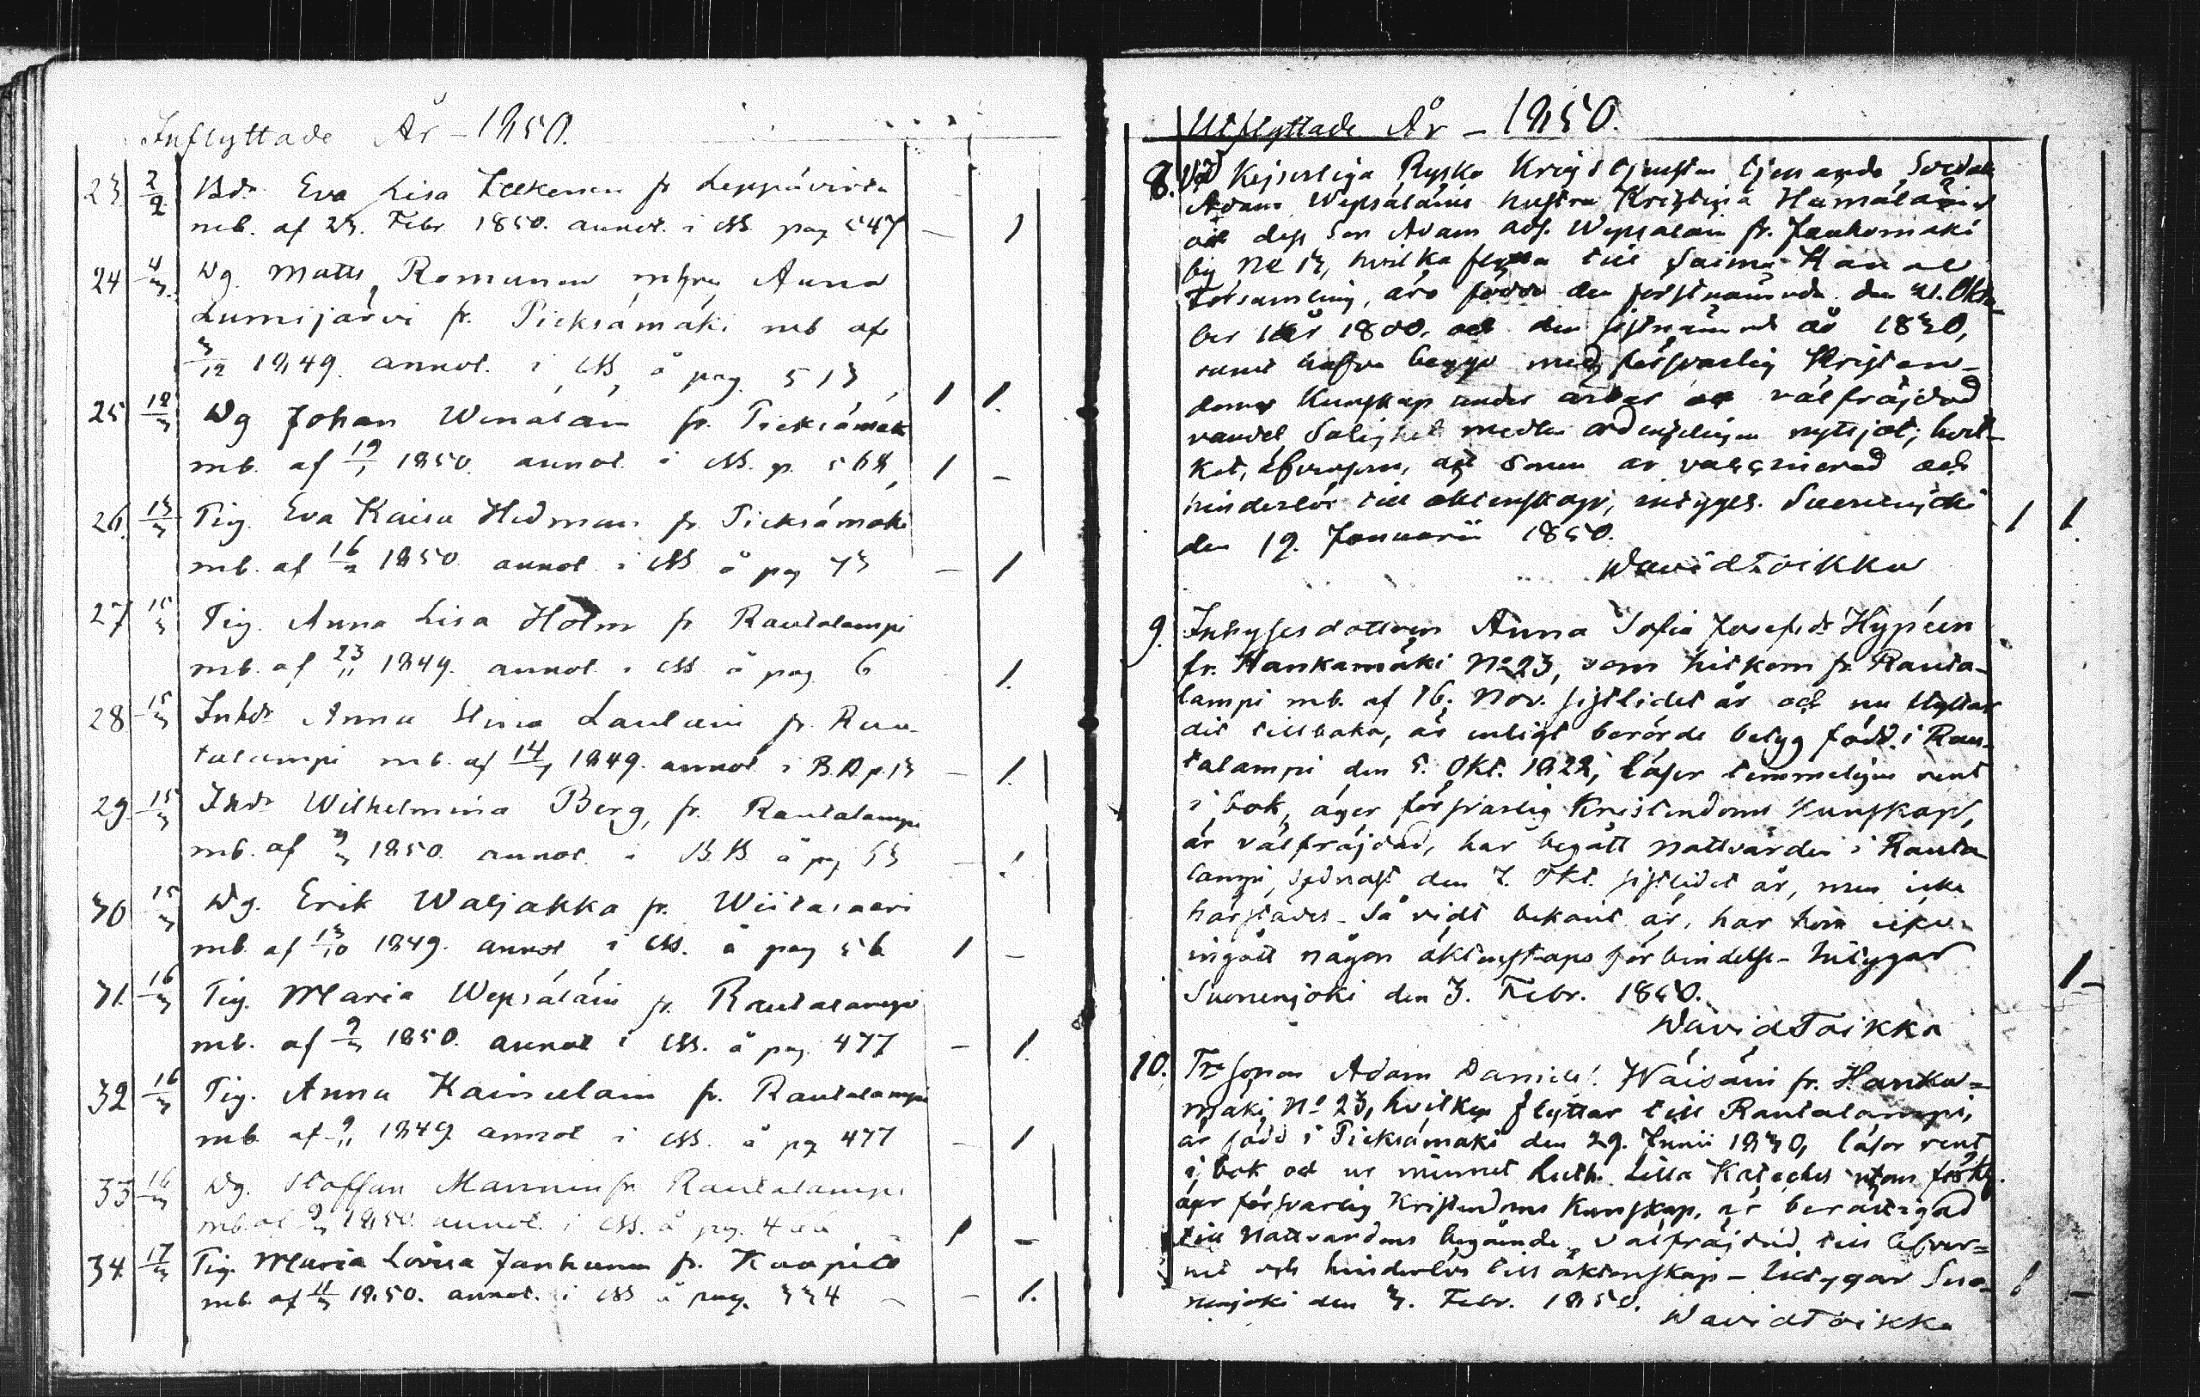 Inflyttade År - 1850.
23 2/2 Bdr Eva Lisa fr Leppävirta
mb. af 23. Febr. 1850. annot. i MB pag 547 - 1
24 4/3 Dg. Matts Romunen m hru Anna
Lumijärvi fr. Pieksämäki mb af
3/12 1849. annot. i MB å pag. 513 1 1.
25 12/3 Dg Johan Wenäläin fr. Pieksämäk
mb. af 19/1 1850. annot. i MB. p. 568 1 -
26. 13/3 Pig. Eva Kaisa Hedman fr. Pieksämäki
mb. af 16/2 1850 annot i MB å pag 73 - 1
27 15/3 Pig. Anna Lisa Holm fr Rautalampi
mb. af 23/11 1849. annot. i MB å pag 6 1.
28 15/3 Inhdr Anna Stina Laulain fr. Rau-
talampi mb. af 1849. annot i B.B p.13 - 1.
29. 15/3 Inhdr Wilhelmina Berg, fr. Rautalampi
mb. af 1850 annot. i B.B å pag 53 - 1
30 15/3 Dg. Erik Waljakka fr. Wiitasaari
mb. af 13/10 1849. annot i MB. å pag 56 1 -
31. 16/3 Pig. Maria Wepsäläin fr. Rautalampi
mb. af 9/3 1850. annot i MB. å pag. 477 - 1.
32 16/3 Pig. Anna Kainulain fr. Rautalampi
mb af 9/11 1849 annot i MB. å pag 477 - 1
33 16/3 Dg. Staffan Mannin fr Rautalampi
mb. af 1850. annot. i MB. å pag. 1 -
34 17/3 Pig. Maria Lovisa Janhunen fr. Kuopio
mb. af 11/3 1850. annot. i MB å pag. 334 - 1.
Utflyttade År - 1850.
8. Vid Kejserliga Ryska Krigstjensten tjenande Soldaten
Adam Wepsäläins hustru Kristina Hämäläinen
och dess Son Adam Ads. Wepsäläin fr. Jauhomäki
by No 13, hvilka flytta till Saima Kanal
Församling, äro födde den förstnämnda den 21. Okto-
ber år 1800, och den sistnämnde år 1830,
samt hafva begge med försvarlig Kristen-
doms Kunskap under ärbar och välfräjdad
vandel Salighets medlen ordentligen nyttjat; hvil-
ket, äfvensom, att Sonen är vaccinerad och
hinderlös till äktenskap, intygges. Suonenjoki
den 19. Januarii 1850. 1 1.
David Toikka
9. Inhysesdottren Anna Sofia Josefsdr Hypéin
fr. Hankamäki No 23, som hitkom fr. Rauta-
lampi mb. af 16. Nov. sistlidet år och nu flyttar
dit tillbaka, är enligt berörde betyg född i Rau-
talampi den 5. Okt. 1822, läser temmeligen rent
i bok, äger försvarlig Kristendoms Kunskap,
är välfräjdad, har begått Nattvarden i Rauta-
lampi, sednast den 7. Okt. sistlidet år, men icke
härstädes. Så vidt bekant är, har hon icke
ingått någon äktenskaps förbindelse - Intygar
Suonenjoki den 3. Febr. 1850. 1 -
David Toikka
10. Adam Daniels. Wäisäin fr. Hanka-
mäki No 23, hvilken flyttar till Rautalampi,
är född i Pieksämäki den 29. Junii 1830, läser rent
i bok och ur minnet Luth. Lilla Kateches utom
äger försvarlig Kristendoms Kunskap, är berättigad
till Nattvardens begående, välfräjdad till lefver-
net och hinderlös till äktenskap - Intygar Suo-
nenjoki den 3. Febr. 1850. 1 -
David Toikka